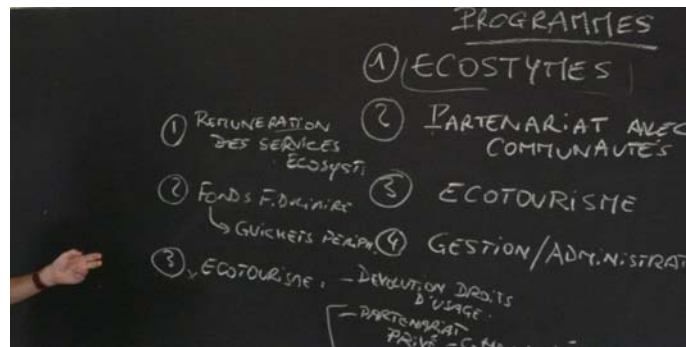 PROGRAMMES
① ECOSTYMES
② PARTENARIAT AVEC
COMMUNAUTES
③ ECOTOURISME
④ GESTION/ADMINISTRAT
① REMUNERATION
DES SERVICES
ECOSYST.
② FONDS FIDUCIAIRE
↳ GUICHETS PERIPH.
③ ECOTOURISME : - DEVOLUTION DROITS
D'USAGE.
- PARTENARIAT
PRIVÉ -